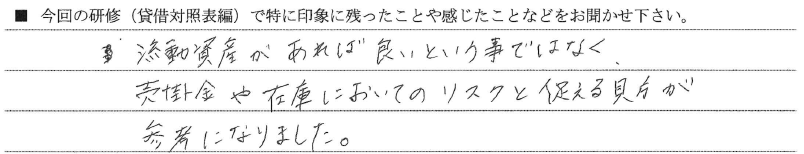 ■ 今回の研修（貸借対照表編）で特に印象に残ったことや感じたことなどをお聞かせ下さい。
流動資産があれば良いという事ではなく、
売掛金や在庫においてのリスクと捉える見方が
参考になりました。